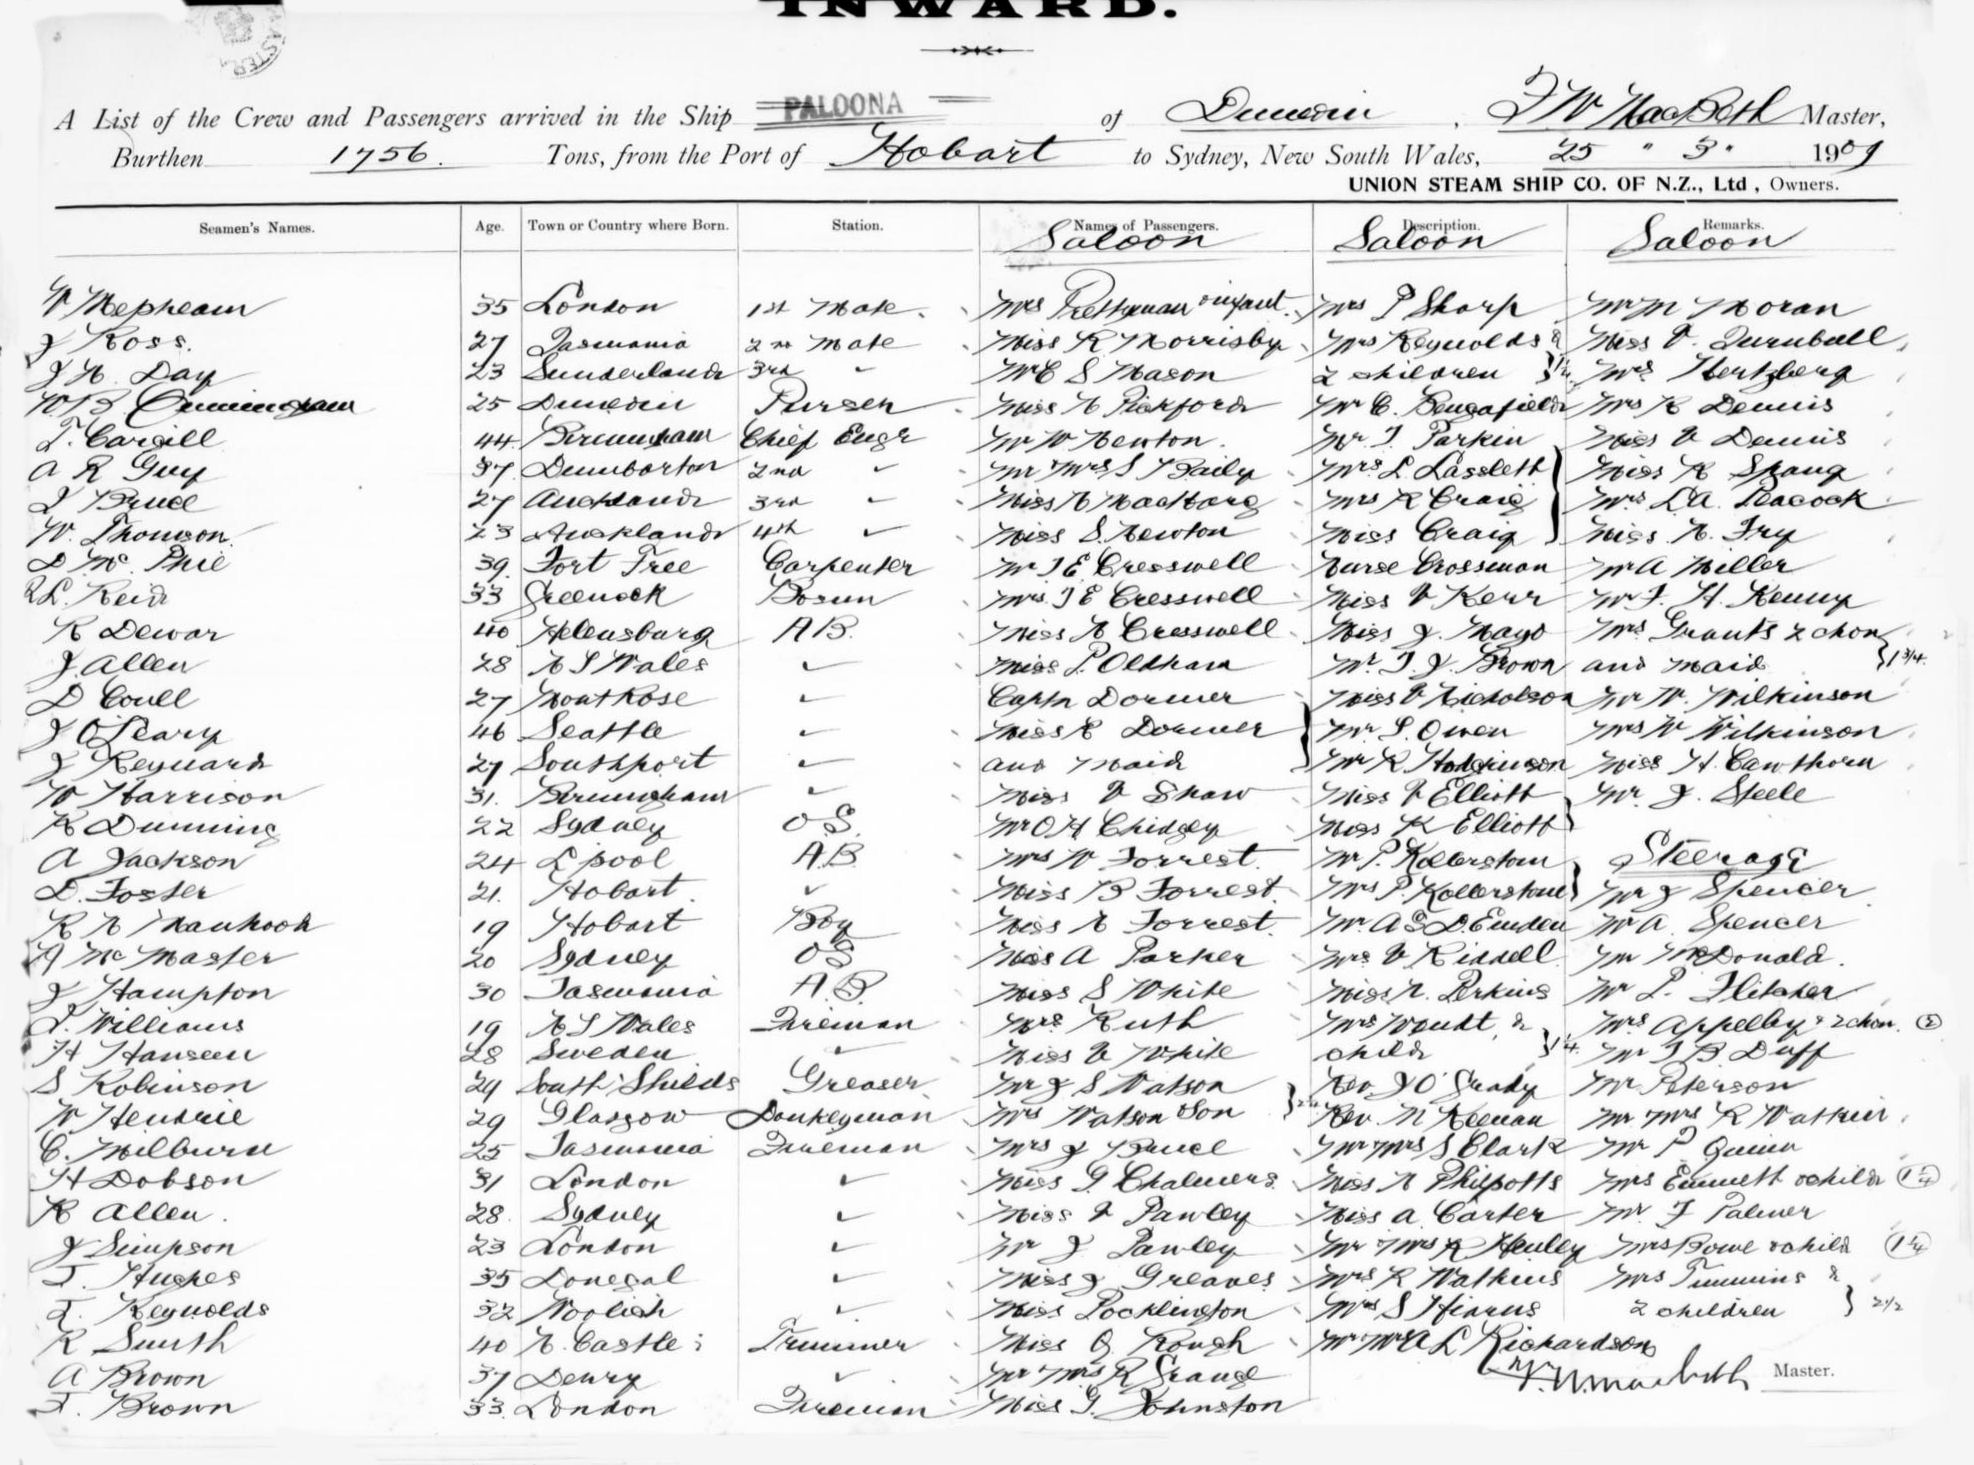 INWARD.
A List of the Crew and Passengers arrived in the Ship PALOONA of Dunedin, J W MacBeth Master,
Burthen 1756. Tons, from the Port of Hobart to Sydney, New South Wales, 25 " 3 " 1909
UNION STEAM SHIP CO. OF N.Z., Ltd, Owners.
Seamen's Names. Age. Town or Country where Born. Station. Names of Passengers. Description. Remarks.
Saloon Saloon Saloon
W Mepheam 35 London 1st Mate. Mrs Prettyman infant. Mrs P Sharp Mr M Moran
J Ross. 27 Tasmania 2nd Mate Miss R Morrisby Mrs Reynolds & Miss V. Turnbull
J W. Day 23 Sunderland 3rd " Mr C S Mason 2 children Mrs Hertzberg
W B. Cunningham 25 Dunedin Purser Miss A Pickford Mr C. Mrs R Dennis
T. Cargill 44 Birmingham Chief Engr Mr W Newton. Mr J. Parkin Miss V Dennis
A R Guy 37 Dumbarton 2nd " Mr Mrs S Baily Mrs L Lasslett Miss R
J Bruce 27 Auckland 3rd " Miss A Mrs R Craig Mrs L.A. Peacock
W. Thomson. 23 Auckland 4th " Miss S. Newton Miss Craig Miss A. Fry
D Mc Phie 39 Fort Tree Carpenter Mr J E Cresswell Nurse Crossman Mr A Miller
R L. Reid 33 Greenock Bosun Mrs J E Cresswell Miss V Kerr Mr J. H. Kenny
R Dewar 40 Helensburg A B. Miss A Cresswell Miss J. Mayo Mrs Grants 2 chdn
J. Allen 28 N S Wales " Miss P. Oldham Mr. J. J. Brown and maid 1 3/4
D Coull 27 Montrose " Captn Dormer Miss V Nicholson Mr W. Wilkinson
J O'Leary 46 Seattle " Miss E Dormer Mr S. Owen Mrs W Wilkinson
J Reynard 27 Southport " and maid Mr R Hodgkinson Miss H. Cawthorn
W Harrison 31. Birmingham " Miss V Shaw Miss V Elliott Mr. J. Steele
R Dunning 22 Sydney O S. Mr O H Chidgey Miss K Elliott
A Jackson 24 L'pool A.B Mrs W Forrest. Mr P. Steerage
D. Foster 21. Hobart. " Miss B Forrest. Mrs P. Mr J Spencer
R A 19 Hobart Boy Miss A Forrest. Mr A S D. Emden Mr A. Spencer
A Mc Master 20 Sydney O S Miss A Parker Mrs V Riddell Mr McDonald.
J Hampton 30 Tasmania A.B. Miss S White Miss A. Perkins Mr P. Flitcher
P. Williams 19 N S Wales Fireman Mrs Ruth Mrs & Mrs Appelby & 2 chdn. (2)
H Hansen 28 Sweden " Miss V White child 1 1/4 Mr J B Duff
S Robinson 29 South Shields Greaser Mr J S Watson Rev J O'Grady Mr Peterson
W Hendrie 29 Glasgow Donkeyman Mrs Watson & Son Rev. M Keenan Mr Mrs R
C. Milburn 25 Tasmania Fireman Mrs J Bruce Mr Mrs S Clark Mr P Quinn
H Dobson 31 London " Miss G Chalmers Miss A Philpotts Mrs Emmett & child (1 1/4)
R Allen. 28. Sydney " Miss V Pawley Miss A. Carter Mr. F Palmer
J Simpson 23 London " Mr J. Pawley Mr Mrs R Henley Mrs Bowe & child (1 1/4)
J. Hughes 35 Donegal " Miss J Greaves Mrs R Watkins Mrs Timmins &
J. Reynolds 32 Woolich " Miss Pocklington Mrs S 2 children 2 1/2
R Smith 40 N. Castle Trimmer Miss Q Rough Mr Mrs A L Richardson
A Brown 37 " Mr Mrs R Grange J. W. Macbeth Master.
J. Brown 33. London Fireman Miss G. Johnston